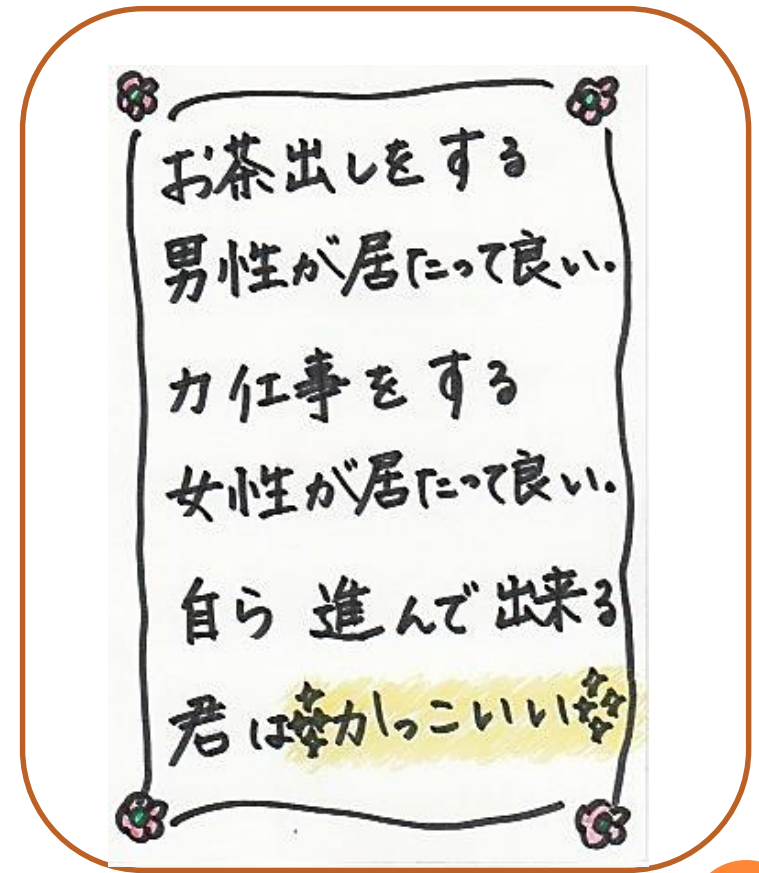 お茶出しをする
男性が居たって良い.
力仕事をする
女性が居たって良い.
自ら進んで出来る
君はかっこいい